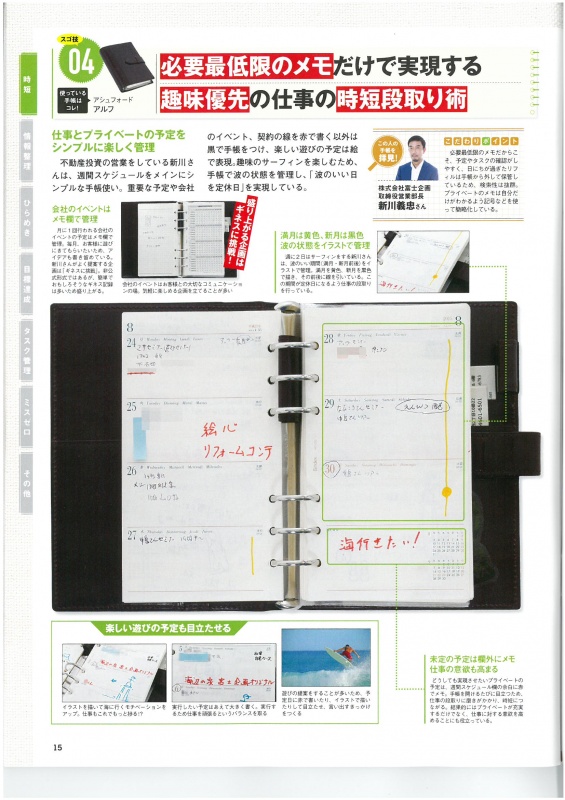 スゴ技
04
使っている
手帳は
コレ!
アシュフォード
アルフ
必要最低限のメモだけで実現する
趣味優先の仕事の時短段取り術
時短
情報整理
ひらめき
目標達成
タスク管理
ミスゼロ
その他
仕事とプライベートの予定を
シンプルに楽しく管理
不動産投資の営業をしている新川さ
んは、週間スケジュールをメインにシン
プルな手帳使い。重要な予定や会社
のイベント、契約の縁を赤で書く以外は
黒で手帳をつけ、楽しい遊びの予定は絵
で表現。趣味のサーフィンを楽しむため、
手帳で波の状態を管理し、「波のいい日
を定休日」を実現している。
この人の
手帳を
拝見!
株式会社富士企画
取締役営業部長
新川義忠さん
こだわりポイント
必要最低限のメモだからこ
そ、予定やタスクの確認がし
やすく、日にちが過ぎたリフィ
ルは手帳から外して保管し
ているため、検索性は抜群。
プライベートのメモは自分だ
けがわかるよう記号などを使
って簡略化している。
会社のイベントは
メモ欄で管理
月に1回行われる会社の
イベントの予定はメモ欄で
管理。毎月、お客様に遊び
にきてもらいたいため、ア
イデアも書き留めている。
新川さんがよく提案する企
画は「ギネスに挑戦」。非公
式形式ではあるが、簡単で
おもしろそうなギネス記録
は多いため盛り上がる。
盛り上がる企画は
ギネスに挑戦!
会社のイベントはお客様との大切なコミュニケーショ
ンの場。気軽に楽しめる企画を立てることが多い
満月は黄色、新月は黒色
波の状態をイラストで管理
週に2日はサーフィンをする新川さん
は、波のいい期間(満月・新月前後)をイ
ラストで管理。満月を黄色、新月を黒色
で描き、その前後に線を引いている。こ
の期間が定休日になるよう仕事の段取り
を行っている。
8
24
25
絵心
リフォームコンテ
26
27
8
28
29
30
海行きたい!
楽しい遊びの予定も目立たせる
イラストを描いて海に行くモチベーションを
アップ。仕事もこれでもっと捗る!?
実行したい予定はあえて大きく書く。実行す
るため仕事を頑張るというバランスを取る
遊びの提案をすることが多いため、予
定日に赤で書いたり、イラストで描い
たりして目立たせ、言い出すきっかけ
をつくる
未定の予定は欄外にメモ
仕事の意欲も高まる
どうしても実現させたいプライベートの
予定は、週間スケジュール欄の余白に赤
でメモ。手帳を開けるたびに目立つため、
仕事の段取りに磨きがかかり、時短につ
ながる。結果的にはプライベートが充実
するだけでなく、仕事に対する意欲を高
めることにも役立っている。
15